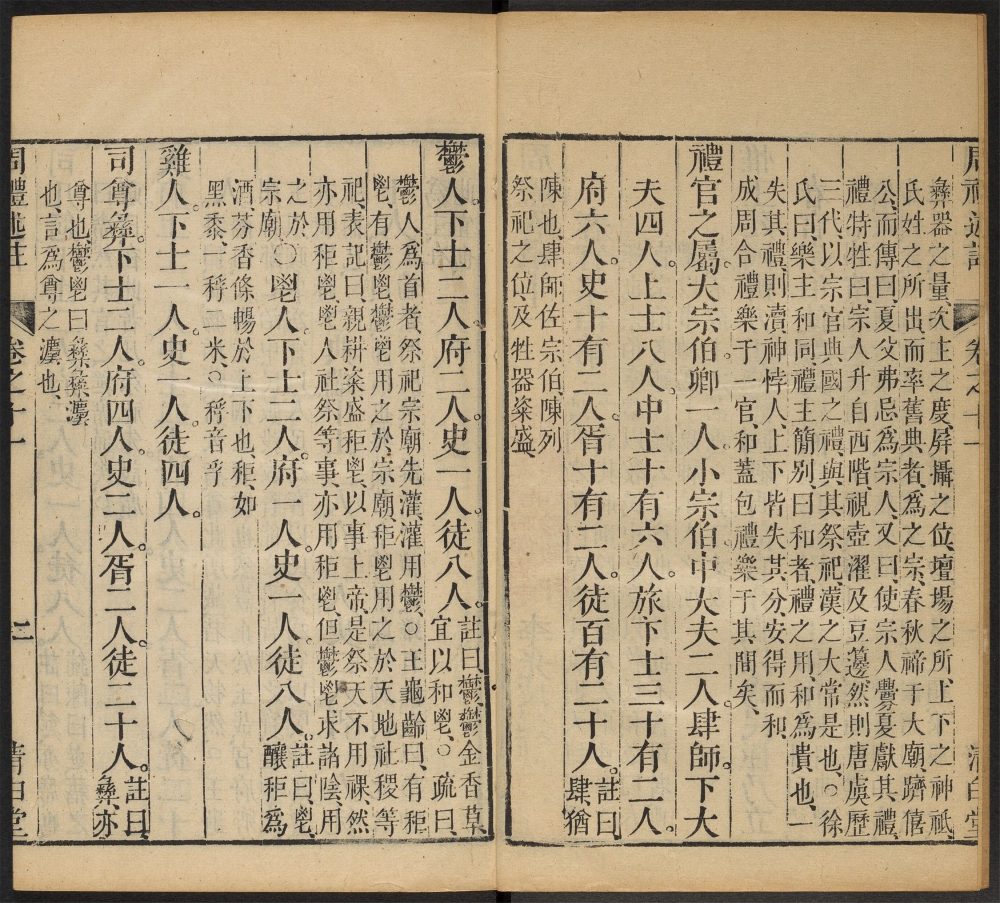 周禮述註
卷之十一
清白堂
彝器之量次主之度屏攝之位壇場之所上下之神祇
氏姓之所出而率舊典者爲之宗春秋禘于大廟躋僖
公而傳曰夏父弗忌爲宗人又曰使宗人釁夏獻其禮
禮特牲曰宗人升自西階視壺濯及豆籩然則唐虞歷
三代以宗官典國之禮與其祭祀漢之大常是也○徐
氏曰樂主和同禮主簡别曰和者禮之用和爲貴也一
失其禮則瀆神悖人上下皆失其分安得而和
成周合禮樂于一官和蓋包禮樂于其間矣
禮官之屬大宗伯卿一人小宗伯中大夫二人肆師下大
夫四人上士八人中士十有六人旅下士三十有二人
府六人史十有二人胥十有二人徒百有二十人註曰肆猶
陳也肆師佐宗伯陳列
祭祀之位及牲器粢盛
鬱人下士二人府二人史一人徒八人註曰鬱鬱金香草
宜以和鬯○疏曰
鬱人爲首者祭祀宗廟先灌灌用鬱○王龜齡曰有秬
鬯有鬱鬯鬱鬯用之於宗廟秬鬯用之於天地社稷等
祀表記曰親耕粢盛秬鬯以事上帝是祭天不用祼然
亦用秬鬯鬯人社祭等事亦用秬鬯但鬱鬯求諸陰用
之於
宗廟○鬯人下士二人府一人史一人徒八人註曰鬯
釀秬爲
酒芬香條暢於上下也秬如
黑黍一稃二米○稃音孚
雞人下士一人史一人徒四人
司尊彝下士二人府四人史二人胥二人徒二十人註曰
彝亦
尊也鬱鬯曰彝彝灋
也言爲尊之灋也
周禮述註
卷之十一
上
清白堂